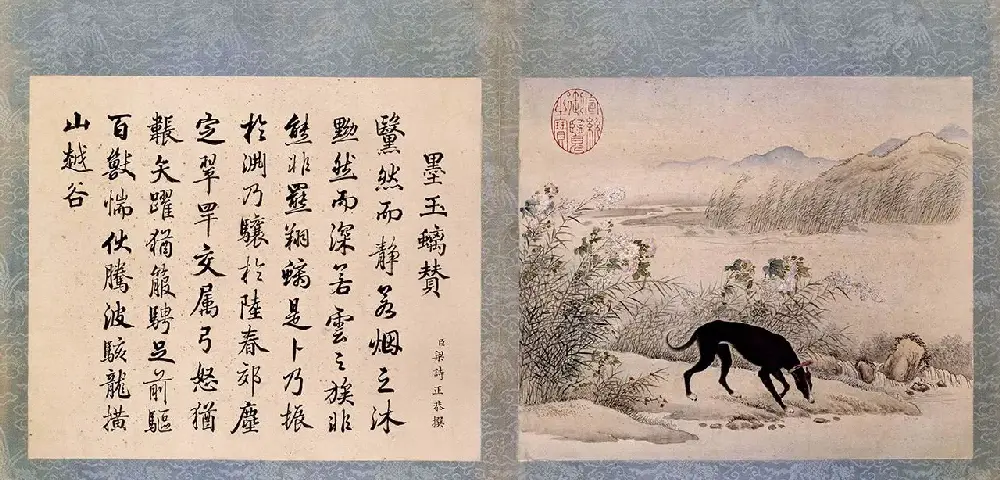 墨玉螭賛
臣梁詩正恭撰
黳然而靜若烟之沐
黝然而深若雲之簇非
熊非羆翔螭是卜乃振
於淵乃驤於陸春郊塵
定翠罕交属弓怒猶
韔矢躍猶箙騁足前驅
百獸惴伏騰波駭龍橫
山越谷
乾隆御覽之寶